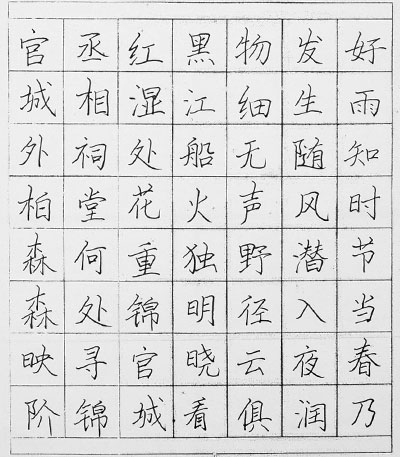 好雨知时节当春乃
发生随风潜入夜润
物细无声野径云俱
黑江船火独明晓看
红湿处花重锦官城
丞相祠堂何处寻锦
官城外柏森森映阶